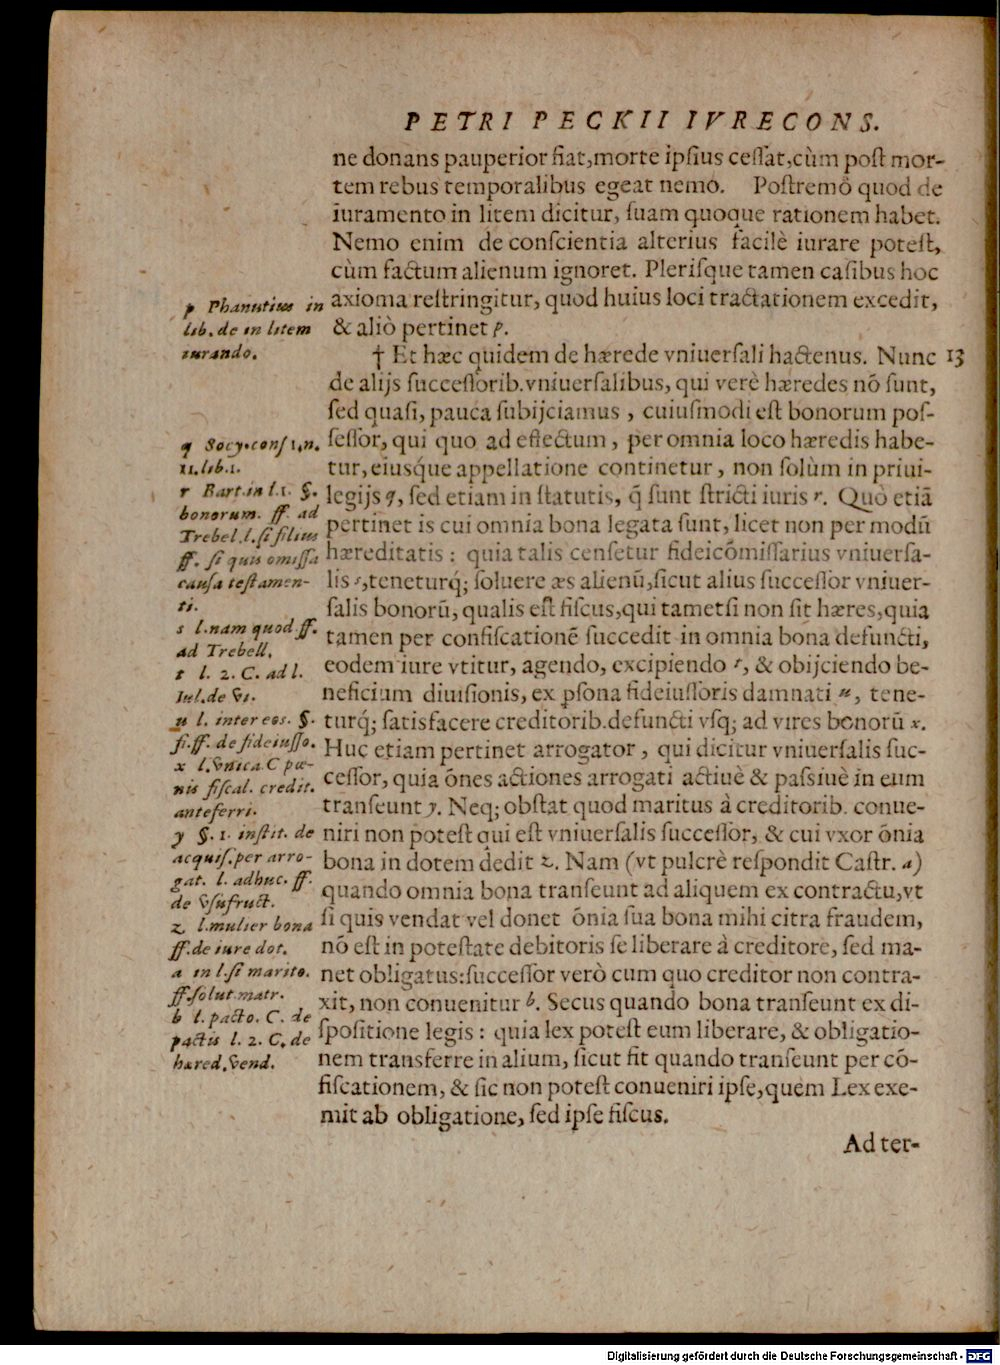 PETRI PECKII IVRECONS.
ne donans pauperior fiat, morte ipſius ceſſat, cùm poſt mor-
tem rebus temporalibus egeat nemo. Poſtremò quod de
iuramento in litem dicitur, ſuam quoque rationem habet.
Nemo enim de conſcientia alterius facilè iurare poteſt,
cùm factum alienum ignoret. Pleriſque tamen caſibus hoc
axioma reſtringitur, quod huius loci tractationem excedit,
& aliò pertinet p.
† Et hæc quidem de hærede vniuerſali hactenus. Nunc 13
de alijs ſucceſſorib. vniuerſalibus, qui verè hæredes nō ſunt,
ſed quaſi, pauca ſubijciamus, cuiuſmodi eſt bonorum poſ-
ſeſſor, qui quo ad effectum, per omnia loco hæredis habe-
tur, eiusq́ue appellatione continetur, non ſolùm in priui-
legijs q, ſed etiam in ſtatutis, q̄ ſunt ſtricti iuris r. Quò etiā
pertinet is cui omnia bona legata ſunt, licet non per modū
hæreditatis: quia talis cenſetur fideicōmiſſarius vniuerſa-
lis s, teneturq́; ſoluere æs alienū, ſicut alius ſucceſſor vniuer-
ſalis bonorū, qualis eſt fiſcus, qui tametſi non ſit hæres, quia
tamen per confiſcationē ſuccedit in omnia bona defuncti,
eodem iure vtitur, agendo, excipiendo t, & obijciendo be-
neficium diuiſionis, ex pſona fideiuſſoris damnati u, tene-
turq́; ſatisfacere creditorib. defuncti vſq; ad vires bonorū x.
Huc etiam pertinet arrogator, qui dicitur vniuerſalis ſuc-
ceſſor, quia ōnes actiones arrogati actiuè & paſsiuè in eum
tranſeunt y. Neq; obſtat quod maritus à creditorib. conue-
niri non poteſt qui eſt vniuerſalis ſucceſſor, & cui vxor ōnia
bona in dotem dedit z. Nam (vt pulcrè reſpondit Caſtr. a)
quando omnia bona tranſeunt ad aliquem ex contractu, vt
ſi quis vendat vel donet ōnia ſua bona mihi citra fraudem,
nō eſt in poteſtate debitoris ſe liberare à creditore, ſed ma-
net obligatus: ſucceſſor verò cum quo creditor non contra-
xit, non conuenitur b. Secus quando bona tranſeunt ex di-
ſpoſitione legis: quia lex poteſt eum liberare, & obligatio-
nem transferre in alium, ſicut fit quando tranſeunt per cō-
fiſcationem, & ſic non poteſt conueniri ipſe, quem Lex exe-
mit ab obligatione, ſed ipſe fiſcus.
Ad ter-
p Phanutius in
lib. de in litem
iurando.
q Socy. conſ 1. n.
11. lib. 1.
r Bart. in l. 1. §.
bonorum. ff. ad
Trebel. l. ſi filius
ff. ſi quis omiſſa
cauſa teſtamen-
ti.
s l. nam quod ff.
ad Trebell.
t l. 2. C. ad l.
Iul. de vi.
u l. inter eos. §.
fi. ff. de fideiuſſo.
x l. vnica. C pœ-
nis fiſcal. credit.
anteferri.
y §. 1. inſtit. de
acquiſ. per arro-
gat. l. adhuc. ff.
de vſufruct.
z l. mulier bona
ff. de iure dot.
a in l. ſi marito.
ff. ſolut. matr.
b l. pacto. C. de
pactis l. 2. C. de
hæred. vend.
Digitalisierung gefördert durch die Deutsche Forschungsgemeinschaft - DFG